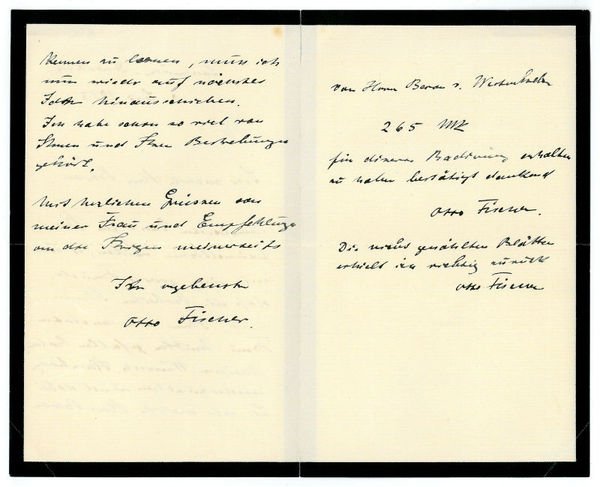 Kennen zu lernen, muss ich
nun wieder auf nächstes
Jahr hinausschieben.
Ich habe schon so viel von
Ihnen und Ihren Bestrebungen
gehört.
Mit herzlichen Grüssen von
meiner Frau und Empfehlungen
an die Ihrigen meinerseits
Ihr ergebenster
Otto Fischer.
von Herrn Baron v.
265 Mk
für diverse Radirung erhalten
zu haben bestätigt dankend
Otto Fischer.
Die nicht gewählten Blätter
erhielt ich richtig zurück
Otto Fischer